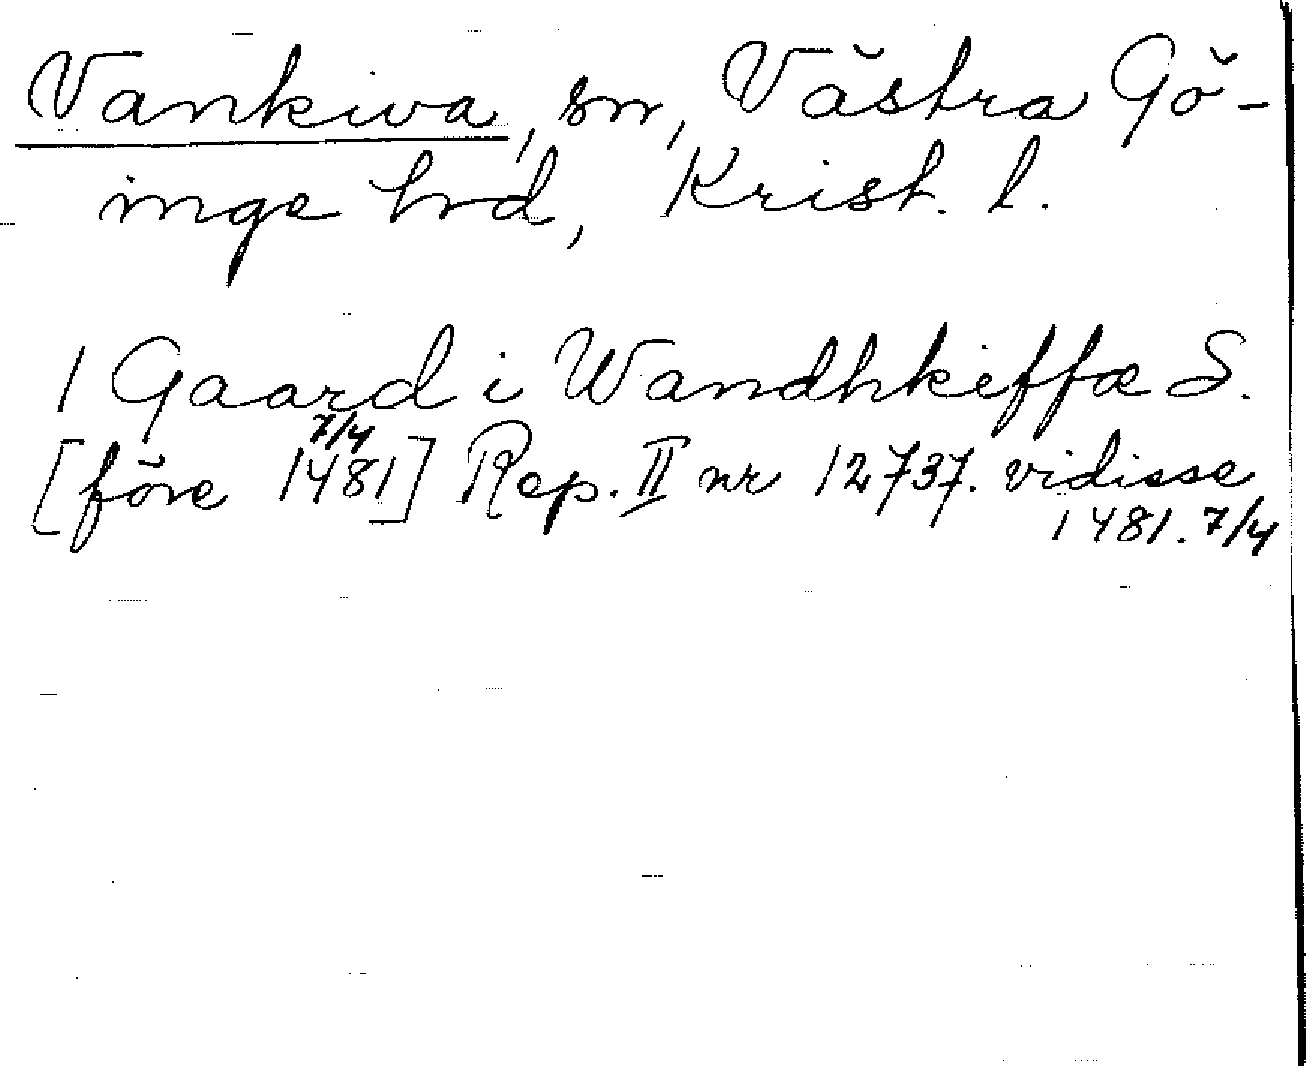 Vankiva, sn, Västra Gö-
inge hrd, Krist. l.
1 Gaard i Wandhkeffæ S.
[före 1481 7/4] Rep. II nr 12737. vidisse
1481. 7/4